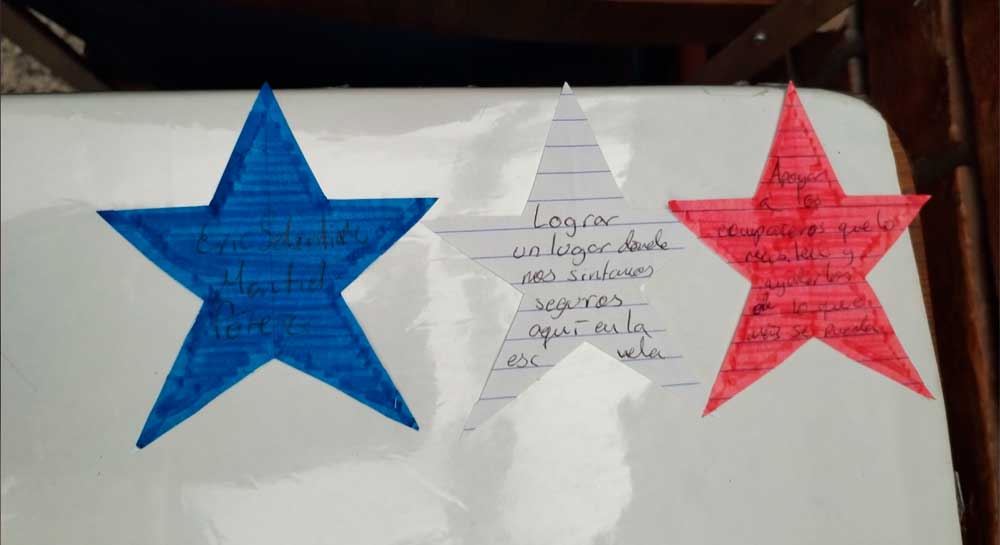 Eric Sebastián
Montiel
Pérez
Lograr
un lugar donde
nos sintamos
seguros
aquí en la
escuela
Apoyar
a los
compañeros que lo
necesiten y
ayudarlos
de lo que
más se pueda